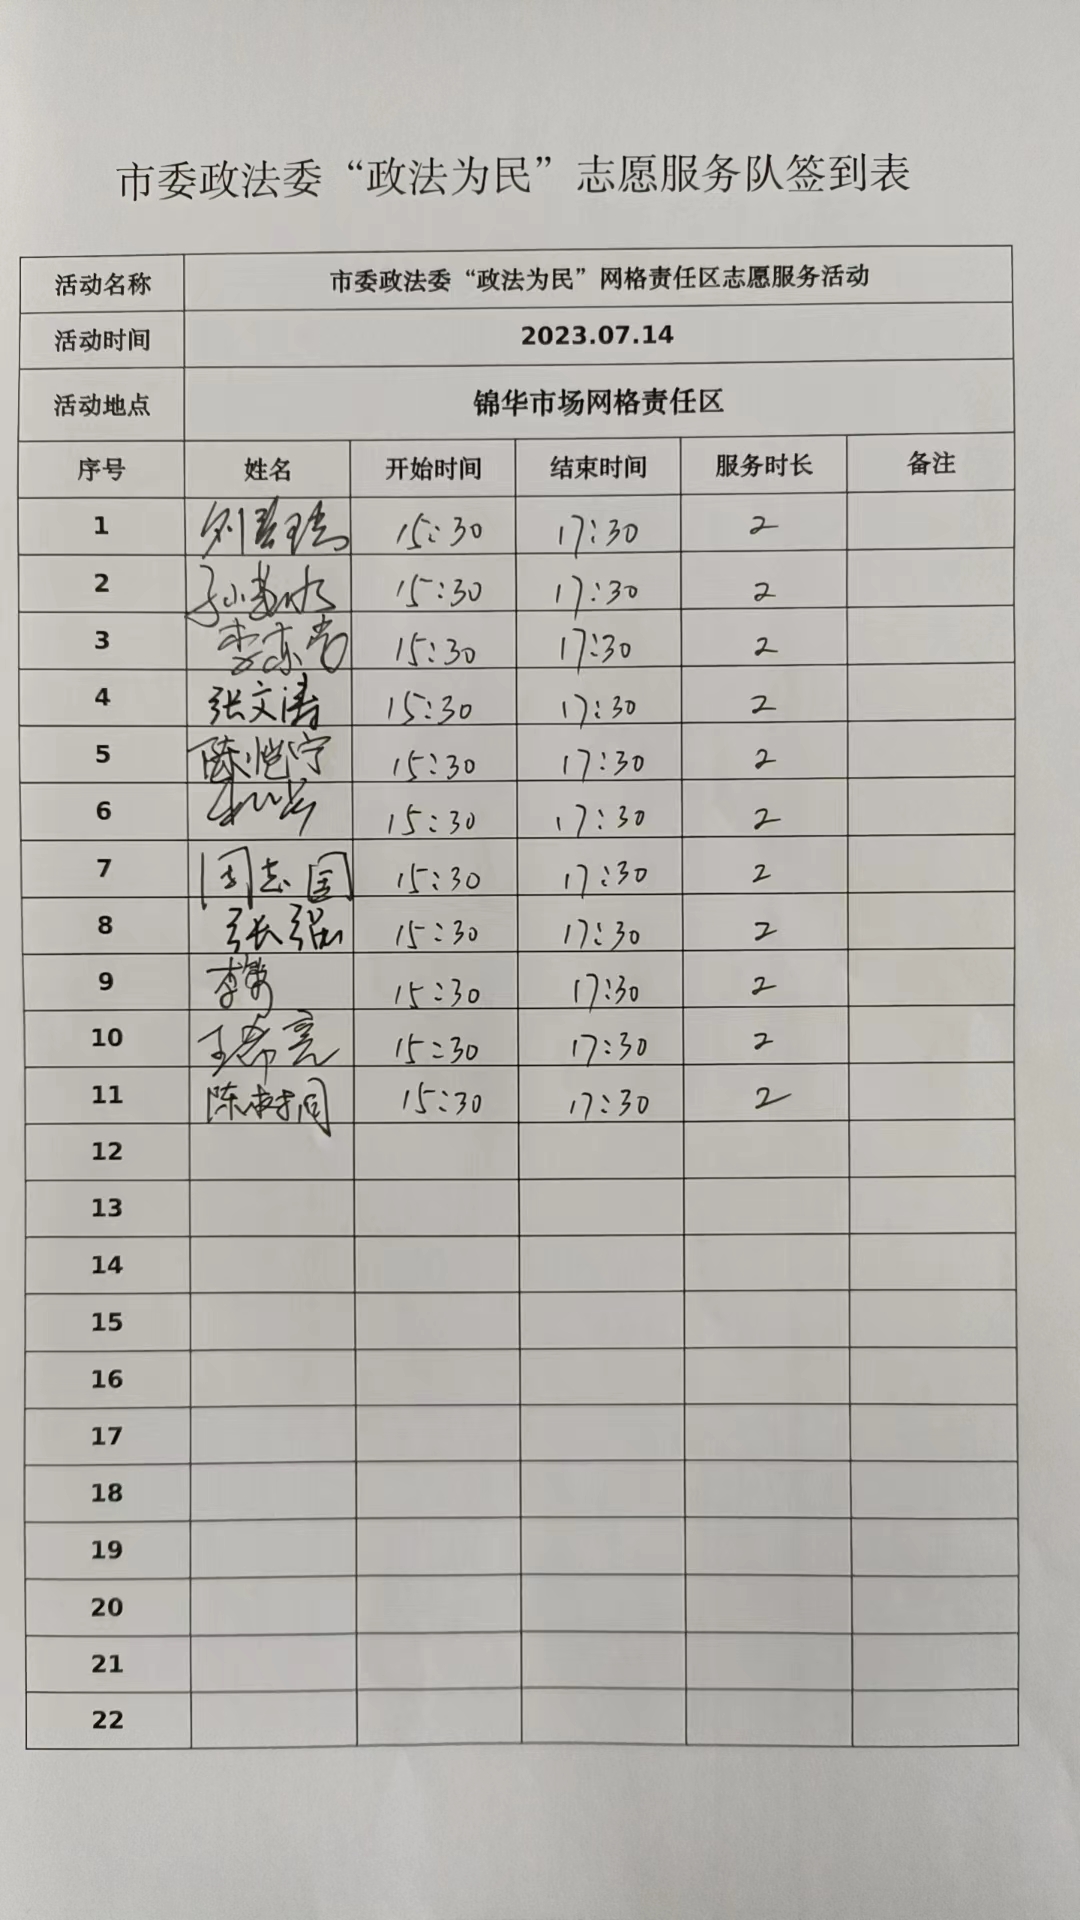 市委政法委“政法为民”志愿服务队签到表
活动名称 市委政法委“政法为民”网格责任区志愿服务活动
活动时间 2023.07.14
活动地点 锦华市场网格责任区
序号 姓名 开始时间 结束时间 服务时长 备注
1 15:30 17:30 2
2 15:30 17:30 2
3 15:30 17:30 2
4 张文涛 15:30 17:30 2
5 陈恺宁 15:30 17:30 2
6 15:30 17:30 2
7 周志国 15:30 17:30 2
8 张强 15:30 17:30 2
9 15:30 17:30 2
10 王希亮 15:30 17:30 2
11 陈树同 15:30 17:30 2
12
13
14
15
16
17
18
19
20
21
22